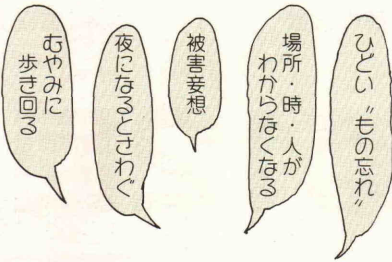 ひどい〝もの忘れ〟
場所・時・人が
わからなくなる
被害妄想
夜になるとさわぐ
むやみに
歩き回る